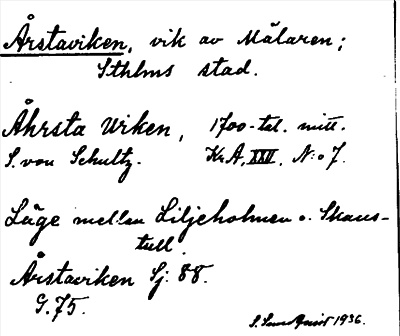 Årstaviken, vik av Mälaren;
Sthlms stad.
Åhrsta Wiken, 1700-tal. mitt.
S. von Schultz. Kr.A, XXV, N:o 7.
Läge mellan Liljeholmen o. Skans-
tull.
Årstaviken Sj: 88.
G. 75.
S. 1936.